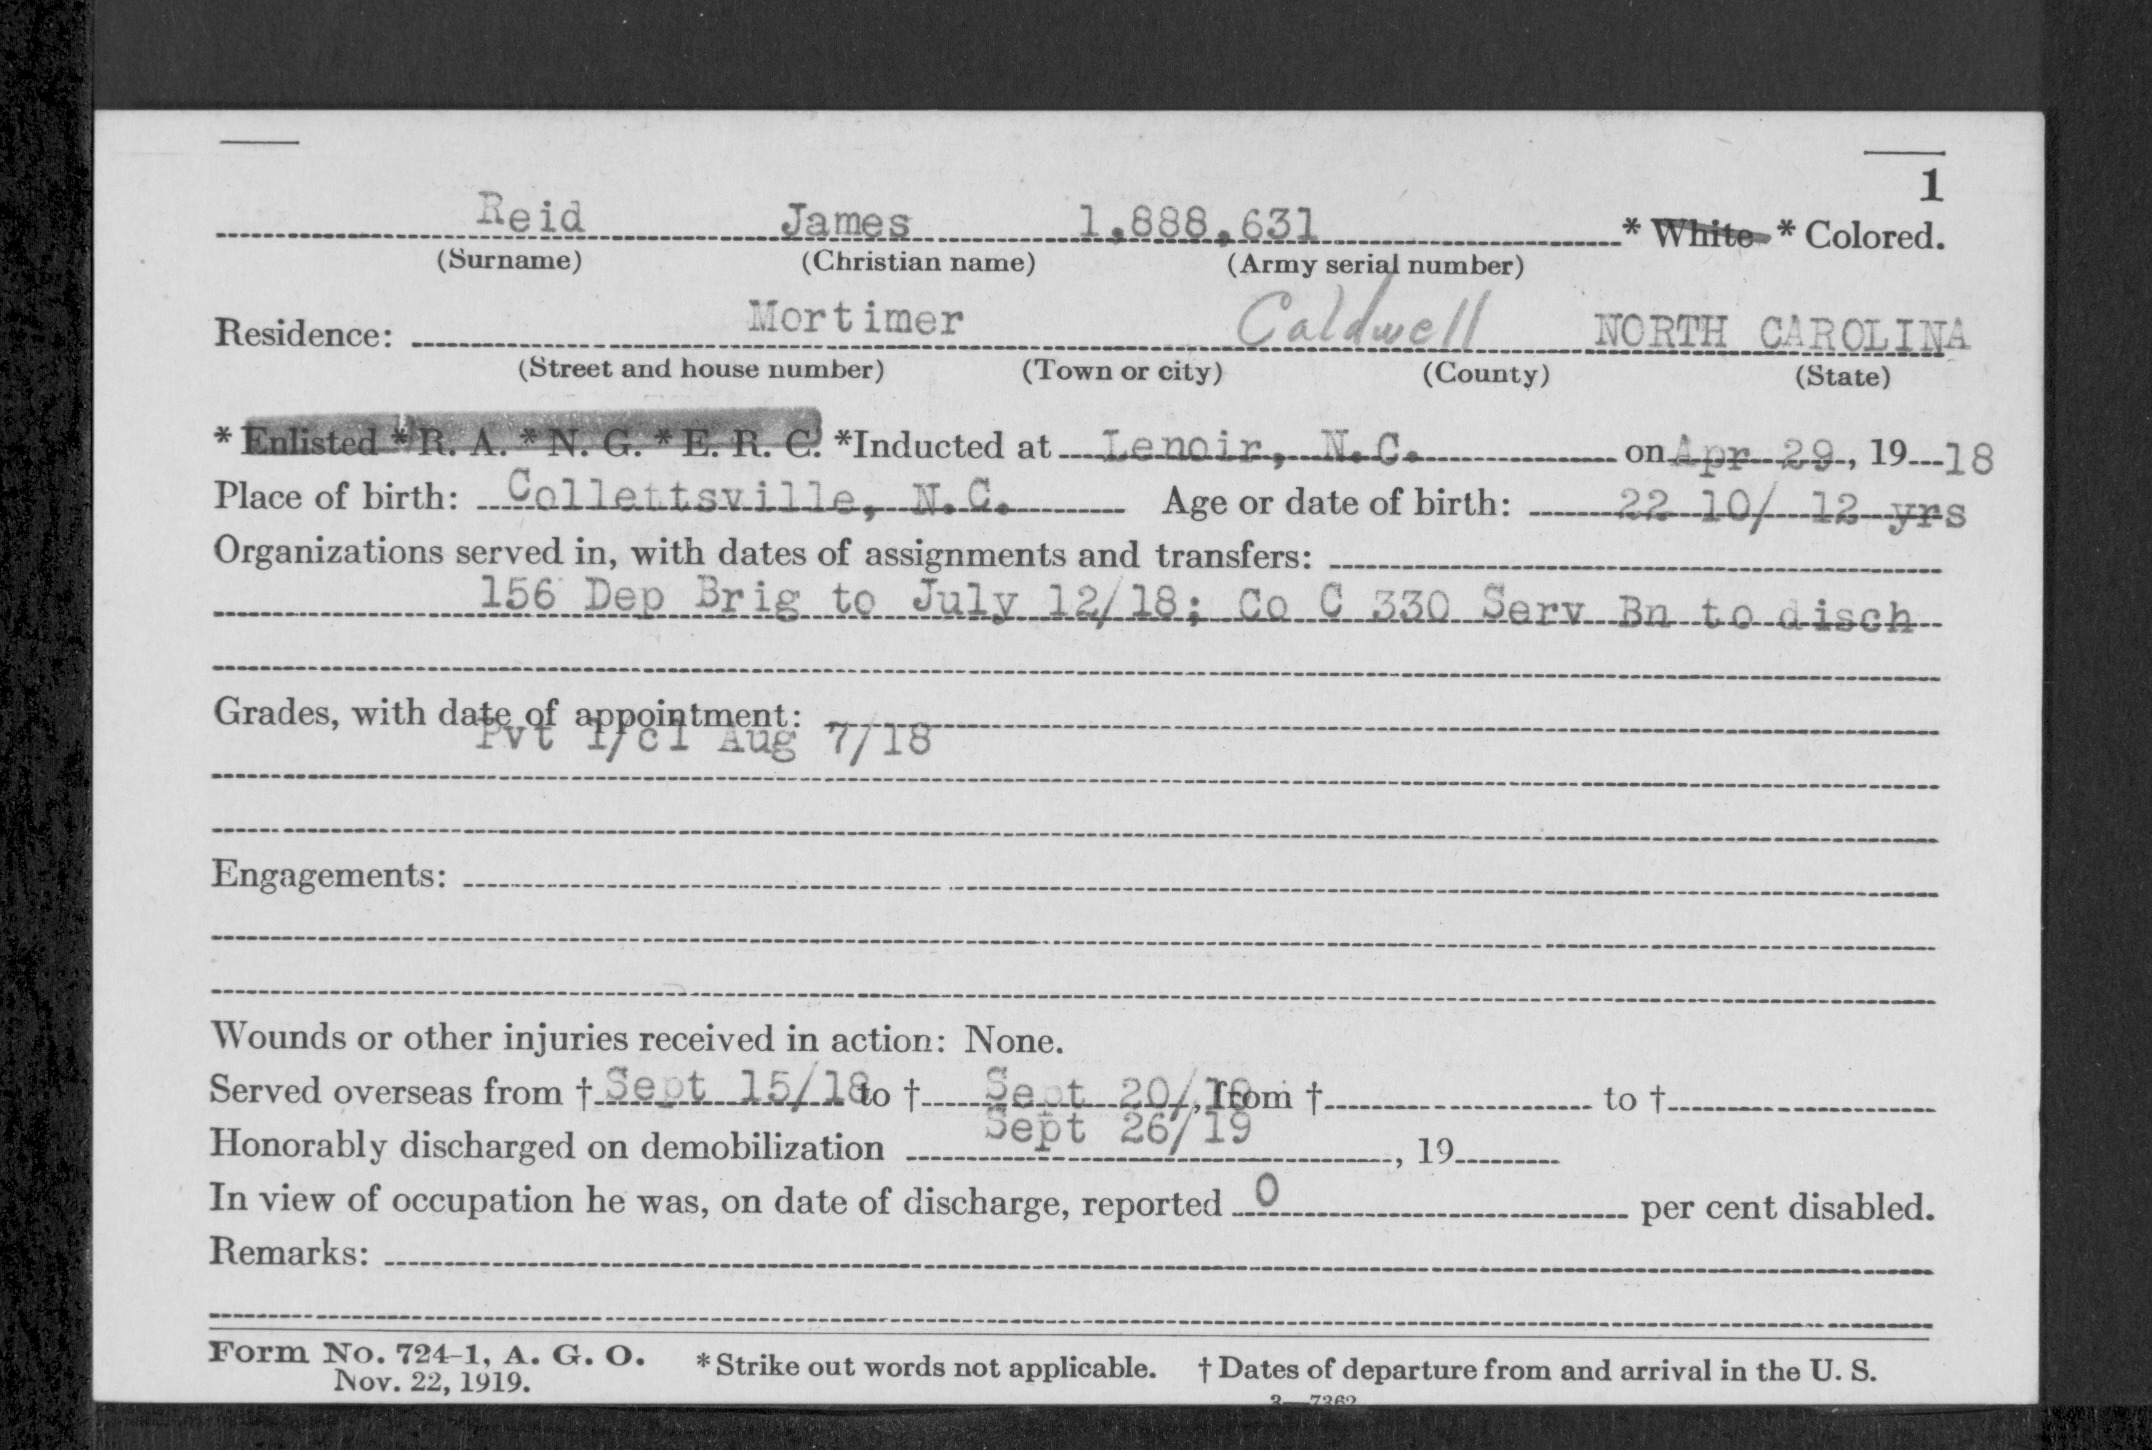 1
Reid James 1,888,631 * White * Colored.
(Surname) (Christian name) (Army serial number)
Residence: Mortimer Caldwell NORTH CAROLINA
(Street and house number) (Town or city) (County) (State)
* Enlisted * R. A. * N. G. * E. R. C. *Inducted at Lenoir, N.C. on Apr 29, 19 18
Place of birth: Collettsville, N.C. Age or date of birth: 22 10/ 12 yrs
Organizations served in, with dates of assignments and transfers:
156 Dep Brig to July 12/18; Co C 330 Serv Bn to disch
Grades, with date of appointment:
Pvt 1/cl Aug 7/18
Engagements:
Wounds or other injuries received in action: None.
Served overseas from † Sept 15/18 to † Sept 20/19, from † to †
Honorably discharged on demobilization Sept 26/19, 19
In view of occupation he was, on date of discharge, reported 0 per cent disabled.
Remarks:
Form No. 724-1, A. G. O. * Strike out words not applicable. † Dates of departure from and arrival in the U. S.
Nov. 22, 1919.
3—7362